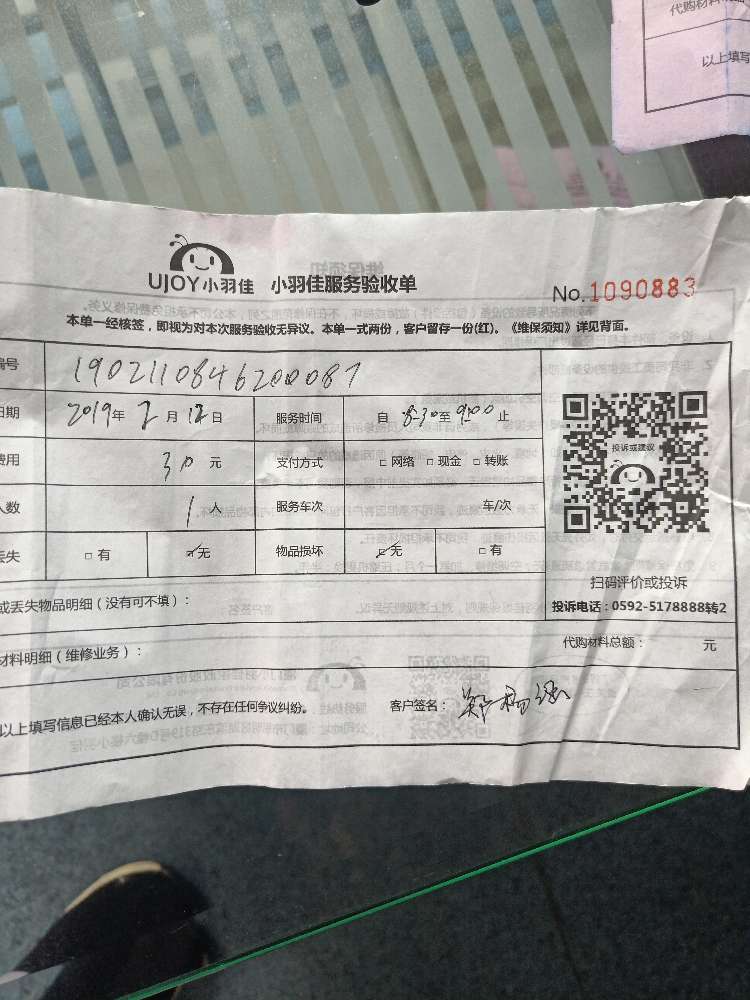 代购材料
以上填写
UJOY小羽佳 小羽佳服务验收单
No.1090883
本单一经核签，即视为对本次服务验收无异议。本单一式两份，客户留存一份(红)。《维保须知》详见背面。
编号 190211084620008７
日期 2019年2月12日 服务时间 自8:30至9:00止
费用 30元 支付方式 □网络 □现金 □转账
人数 1人 服务车次 车/次
丢失 □有 ☑无 物品损坏 ☑无 □有
投诉或建议
扫码评价或投诉
投诉电话：0592-5178888转2
或丢失物品明细（没有可不填）：
代购材料总额： 元
材料明细（维修业务）：
以上填写信息已经本人确认无误，不存在任何争议纠纷。 客户签名：